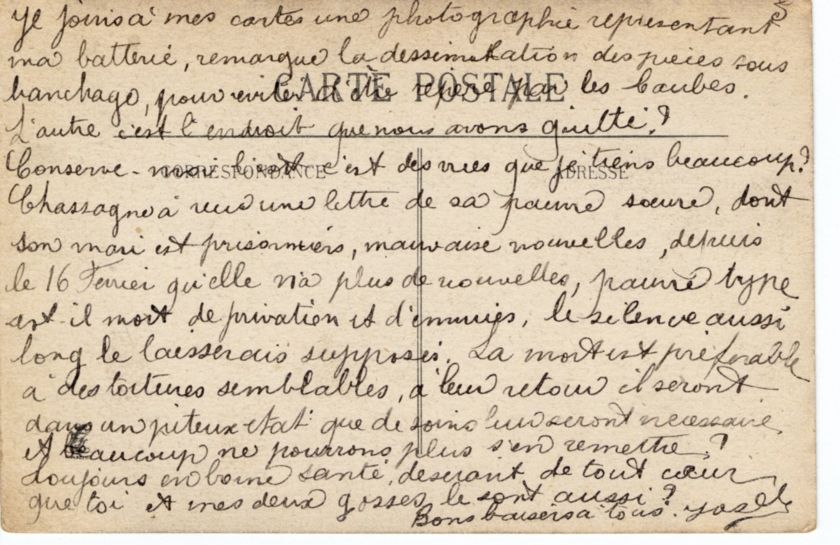 3
Je joins à mes cartes une photographie representant
ma batterie, remarque la dessimulation des pièces sous
banchage, pour eviter d'être repéré par les Baubes.
CARTE POSTALE
L'autre c'est l'endroit que nous avons quitté?
Conserve-moi c'est des vues que je tiens beaucoup?
CORRESPONDANCE
ADRESSE
Chassagne à reçu une lettre de sa pauvre sœure, dont
son mari est prisonniérs, mauvaise nouvelles, depuis
le 16 Fevrier qu'elle n'a plus de nouvelles, pauvre type
est-il mort de privation et d'ennuies, le silence aussi
long le laisserais supposer. La mort est préferable
à des toitures semblables, à leur retour il seront
dans un piteux etat que de soins leur seront necessaire
et beaucoup ne pourrons plus s'en remettre?
Toujours en bonne santé, desirant de tout cœur
que toi et mes deux gosses le sont aussi?
Bons baisers à tous.